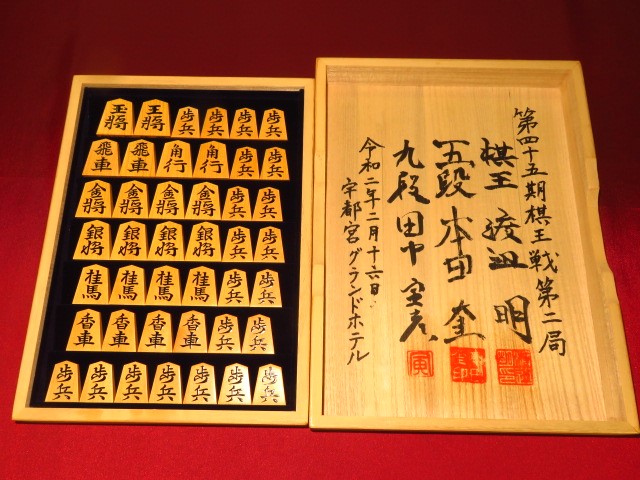 玉將 王將 歩兵 歩兵 歩兵 歩兵
飛車 飛車 角行 角行 歩兵 歩兵
金將 金將 金將 金將 歩兵 歩兵
銀将 銀将 銀将 銀将 歩兵 歩兵
桂馬 桂馬 桂馬 桂馬 歩兵 歩兵
香車 香車 香車 香車 歩兵 歩兵
歩兵 歩兵 歩兵 歩兵 歩兵 歩兵 歩兵
第四十五期棋王戦第二局
棋王 渡辺 明
五段 本田 奎
九段 田中 寅彦
寅
令和二年二月十六日
宇都宮グランドホテル